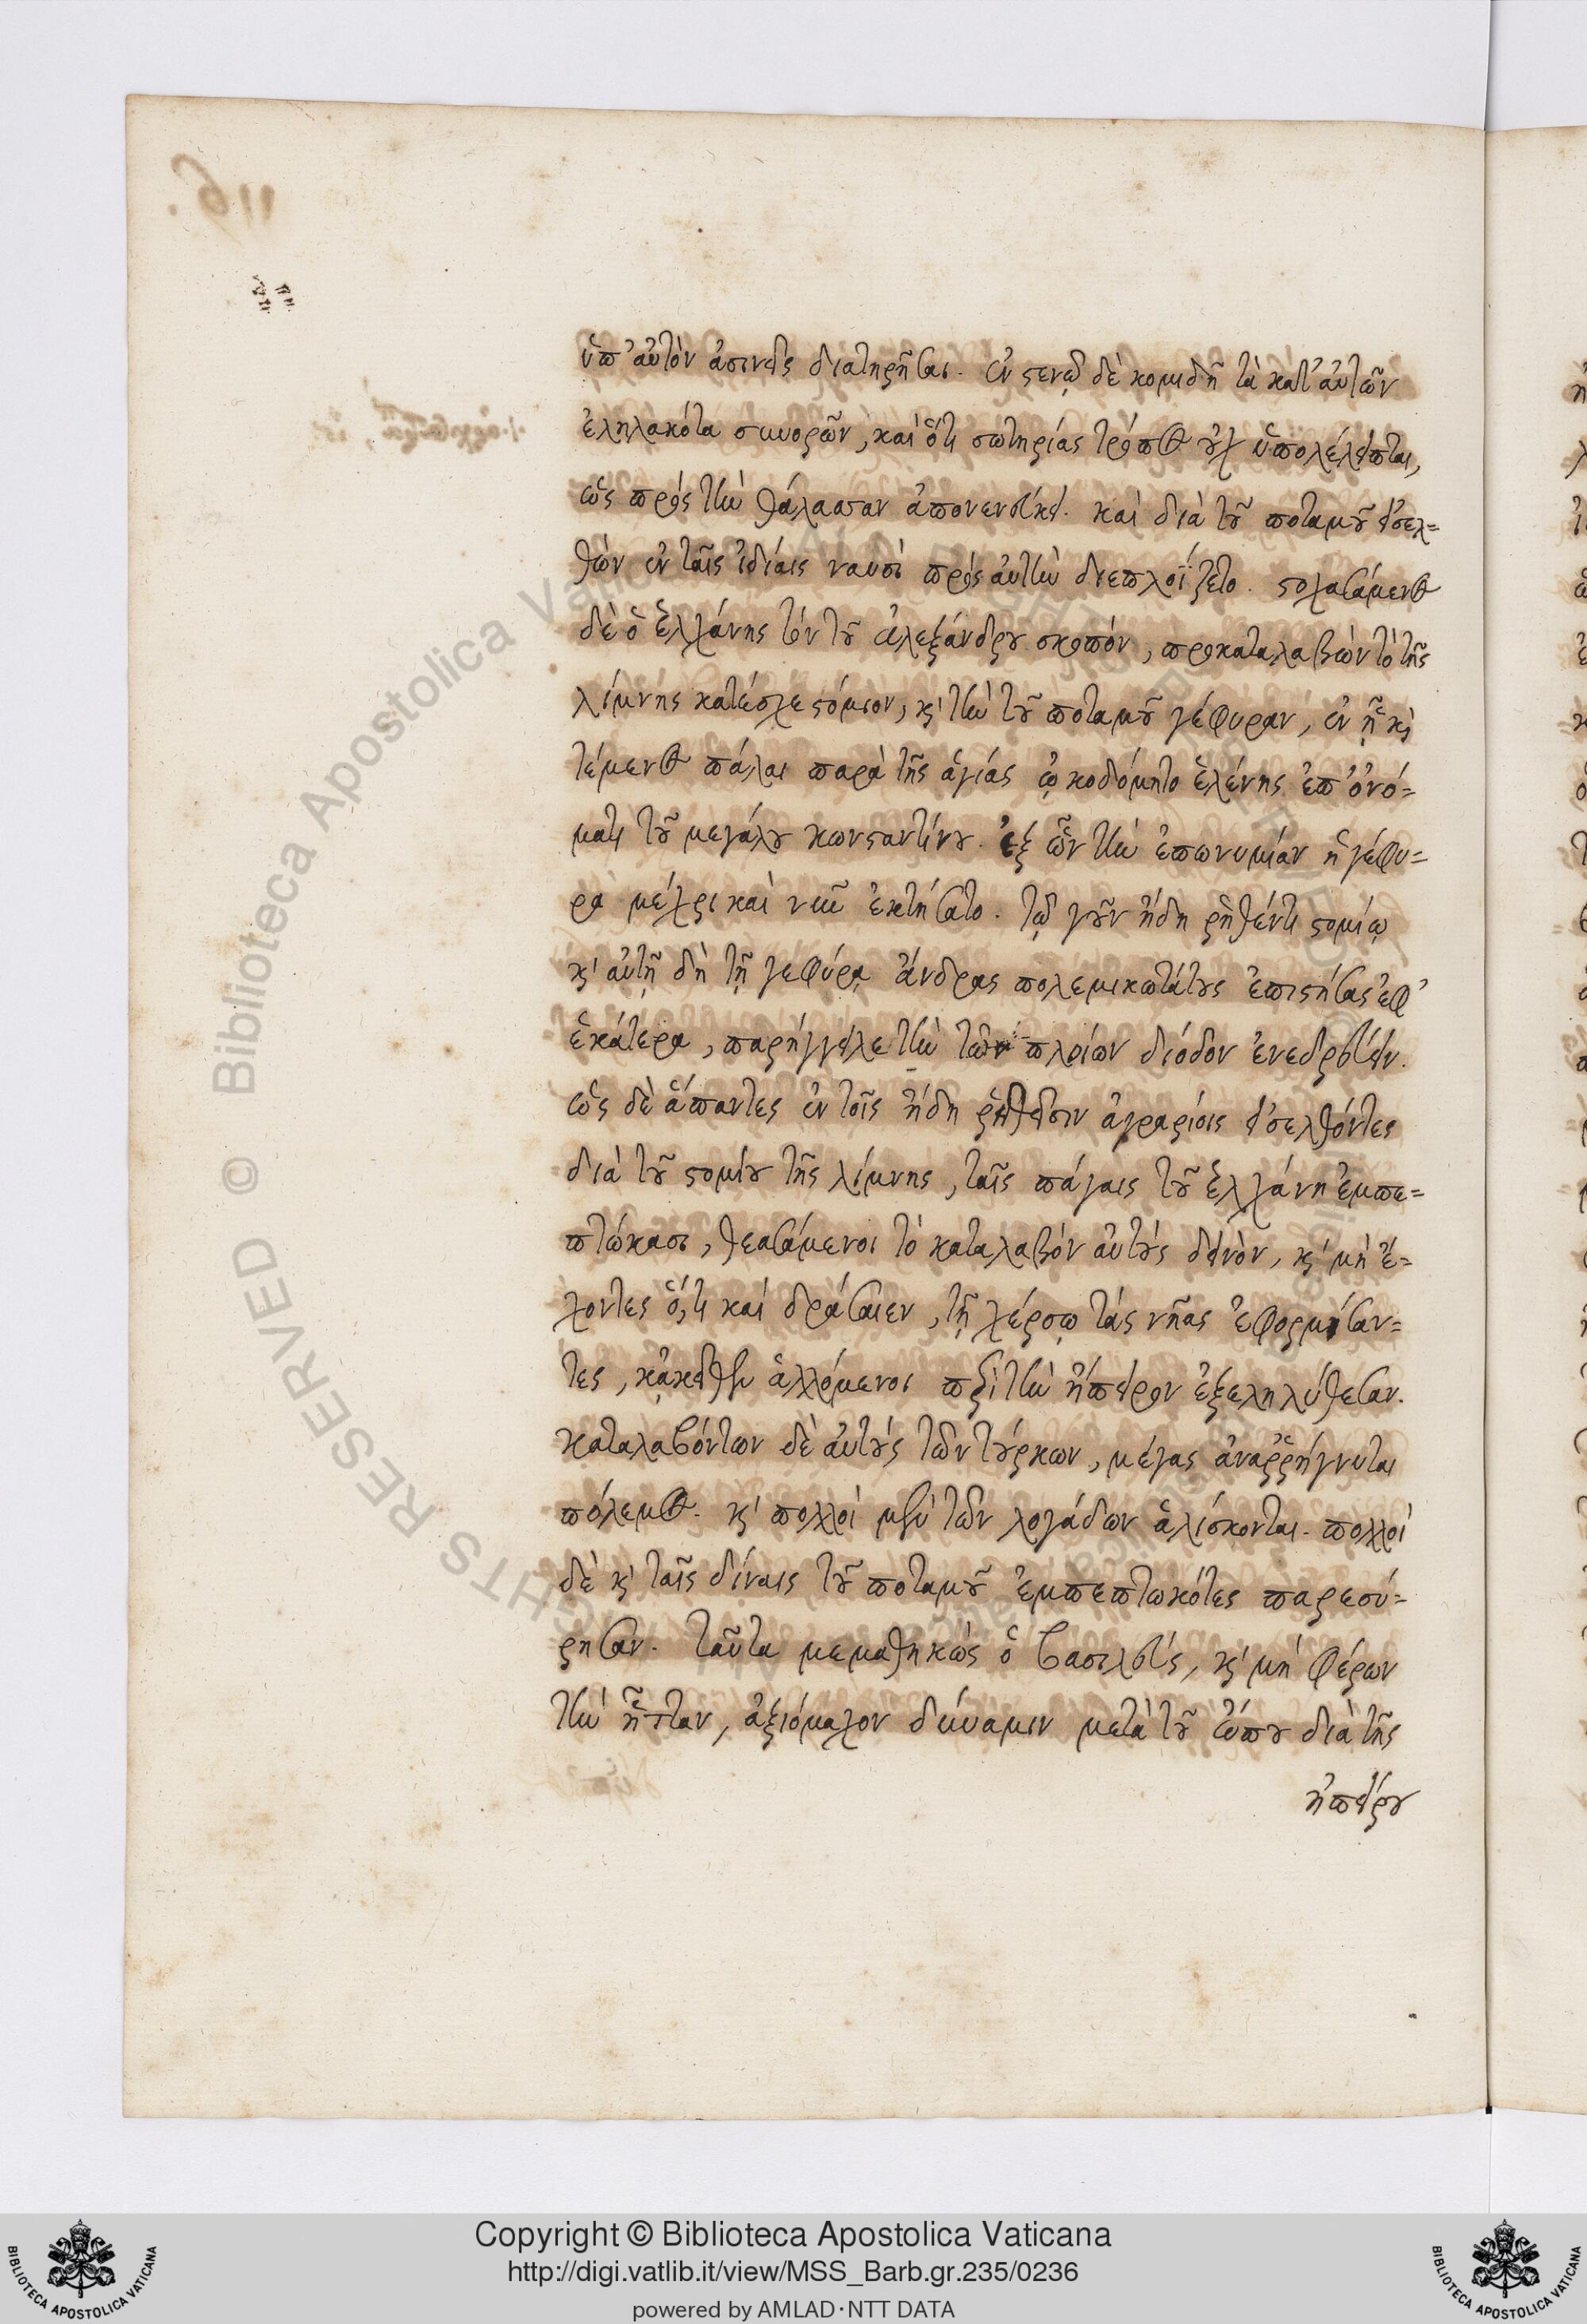 ὑπ' αὐτὸν ἀσινεῖς διατηρῆσαι. ἐν στενῷ δὲ κομιδῇ τὰ κατ' αὐτῶν
ἐληλακότα συνορῶν, καὶ ὅτι σωτηρίας τρόπος οὐχ ὑπολέλειπται,
ὡς πρὸς τὴν θάλασσαν ἀπονενεύκει. καὶ διὰ τοῦ ποταμοῦ εἰσελ=
θὼν ἐν ταῖς ἰδίαις ναυσὶ πρὸς αὐτὴν διεπλοΐζετο. στοχασάμενος
δὲ ὁ ἑλχάνης τὸν τοῦ ἀλεξάνδρου σκοπὸν, προκαταλαβὼν τὸ τῆς
λίμνης κατέσχε στόμιον, καὶ τὴν τοῦ ποταμοῦ γέφυραν, ἐν ᾗ καὶ
τέμενος πάλαι παρὰ τῆς ἁγίας ᾠκοδόμητο ἑλένης ἐπ' ὀνό=
ματι τοῦ μεγάλου κωνσταντίνου. ἐξ ὧν τὴν ἐπωνυμίαν ἡ γέφυ=
ρα μέχρι καὶ νῦν ἐκτήσατο. τῷ γοῦν ἤδη ῥηθέντι στομίῳ
καὶ αὐτῇ δὴ τῇ γεφύρᾳ ἄνδρας πολεμικωτάτους ἐπιστήσας ἐφ'
ἑκάτερα, παρήγγειλε τὴν τῶν πλοίων δίοδον ἐνεδρεύειν.
ὡς δὲ ἅπαντες ἐν τοῖς ἤδη ῥηθεῖσιν ἀγραρίοις εἰσελθόντες
διὰ τοῦ στομίου τῆς λίμνης, ταῖς πάγαις τοῦ ἑλχάνη ἐμπε=
πτώκασι, θεασάμενοι τὸ καταλαβὸν αὐτοὺς δεινὸν, καὶ μὴ ἔ=
χοντες ὅ,τι καὶ δράσαιεν, τῇ χέρσῳ τὰς νῆας ἐφορμήσαν=
τες, κἀκεῖθεν ἁλλόμενοι περὶ τὴν ἤπειρον ἐξεληλύθεσαν.
καταλαβόντων δὲ αὐτοὺς τῶν τούρκων, μέγας ἀναῤῥήγνυται
πόλεμος. καὶ πολλοὶ μὲν τῶν λογάδων ἁλίσκονται. πολλοὶ
δὲ καὶ ταῖς δίναις τοῦ ποταμοῦ ἐμπεπτωκότες παρεσύ=
ρησαν. ταῦτα μεμαθηκὼς ὁ βασιλεὺς, καὶ μὴ φέρων
τὴν ἧτταν, ἀξιόμαχον δύναμιν μετὰ τοῦ ὤπου διὰ τῆς
ἠπείρου
Copyright © Biblioteca Apostolica Vaticana
http://digi.vatlib.it/view/MSS_Barb.gr.235/0236
powered by AMLAD・NTT DATA
BIBLIOTECA APOSTOLICA VATICANA
BIBLIOTECA APOSTOLICA VATICANA